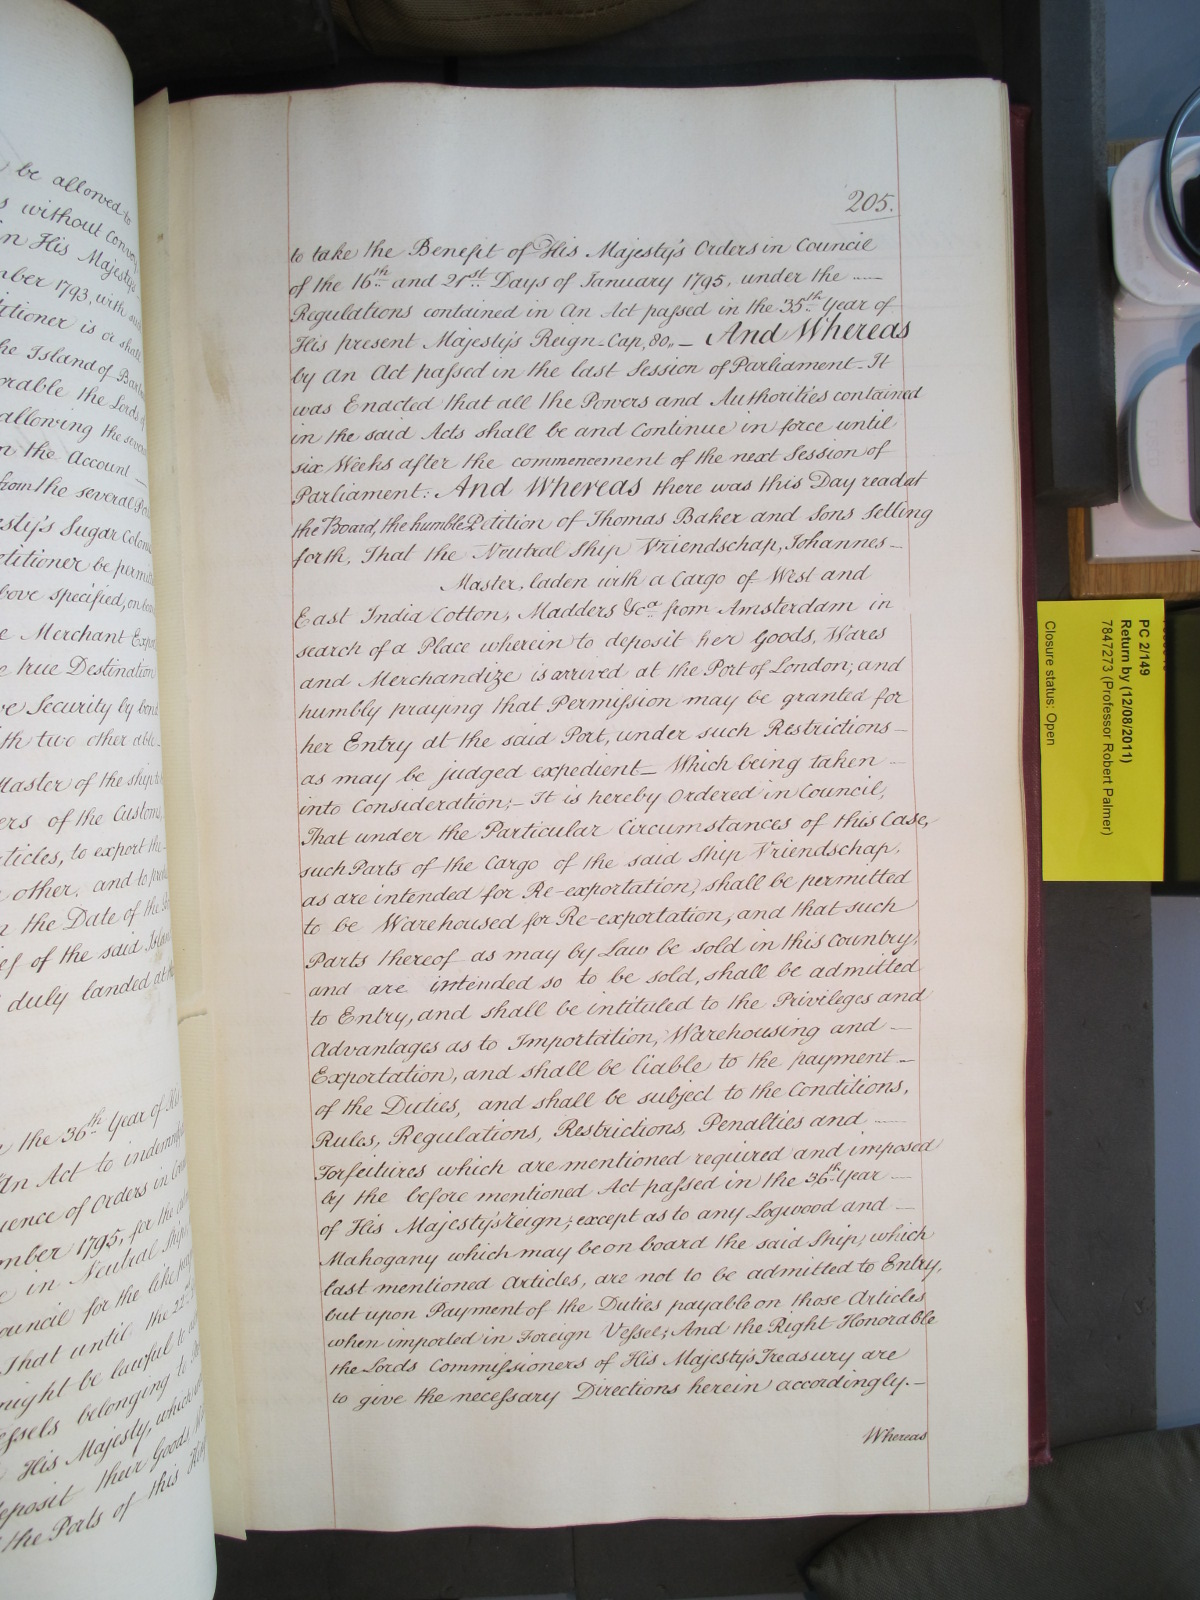 be allowed to
s without
in His Majesty's
mber 1793, with
titioner is a
he Island of
orable the Lords of
allowing the several
n the Account
from the several
esty's Sugar
etitioner be
bove specified, on
e Merchant
e true Destination
ve Security by bond
ith two other able
Master of the ship
ers of the Customs
rticles, to export the
other, and to
n the Date of the
ief of the said
duly landed at
the 36th Year of His
An Act to
uence of Orders in
mber 1795, for the
e in Neutral Ships
ouncil for the like
That until the 22
might be lawful to
essels belonging to
His Majesty, which
deposit their Goods
the Ports of this
205.
to take the Benefit of His Majesty's Orders in Council
of the 16th and 21st Days of January 1795, under the
Regulations contained in An Act passed in the 35th Year of
His present Majesty's Reign_Cap, 80,_ And Whereas
by An Act passed in the last Session of Parliament_It
was Enacted that all the Powers and Authorities contained
in the said Acts shall be and Continue in force until
six Weeks after the commencement of the next Session of
Parliament: And Whereas there was this Day read at
the Board, the humble Petition of Thomas Baker and Sons setting
forth, That the Neutral Ship Vriendschap, Johannes_
Master, laden with a Cargo of West and
East India Cotton, Madders &ca from Amsterdam in
search of a Place wherein to deposit her Goods, Wares
and Merchandize is arrived at the Port of London; and
humbly praying that Permission may be granted for
her Entry at the said Port, under such Restrictions_
as may be judged expedient_ Which being taken
into Consideration;_ It is hereby Ordered in Council,
That under the Particular Circumstances of this Case,
such Parts of the Cargo of the said Ship Vriendschap,
as are intended for Re-exportation, shall be permitted
to be Warehoused for Re-exportation, and that such
Parts thereof as may by Law be sold in this Country,
and are intended so to be sold, shall be admitted
to Entry, and shall be intituled to the Privileges and
Advantages as to Importation, Warehousing and _
Exportation, and shall be liable to the payment_
of the Duties, and shall be subject to the Conditions,
Rules, Regulations, Restrictions, Penalties and
Forfeitures which are mentioned required and imposed
by the before mentioned Act passed in the 36th Year_
of His Majesty's reign; except as to any Logwood and _
Mahogany which may be on board the said Ship, which
last mentioned Articles, are not to be admitted to Entry,
but upon Payment of the Duties payable on those Articles
when imported in Foreign Vessel; And the Right Honorable
the Lords Commissioners of His Majesty's Treasury are
to give the necessary Directions herein accordingly._
Whereas
PC 2/149
Return by (12/08/2011)
7847273 (Professor Robert Palmer)
Closure status: Open